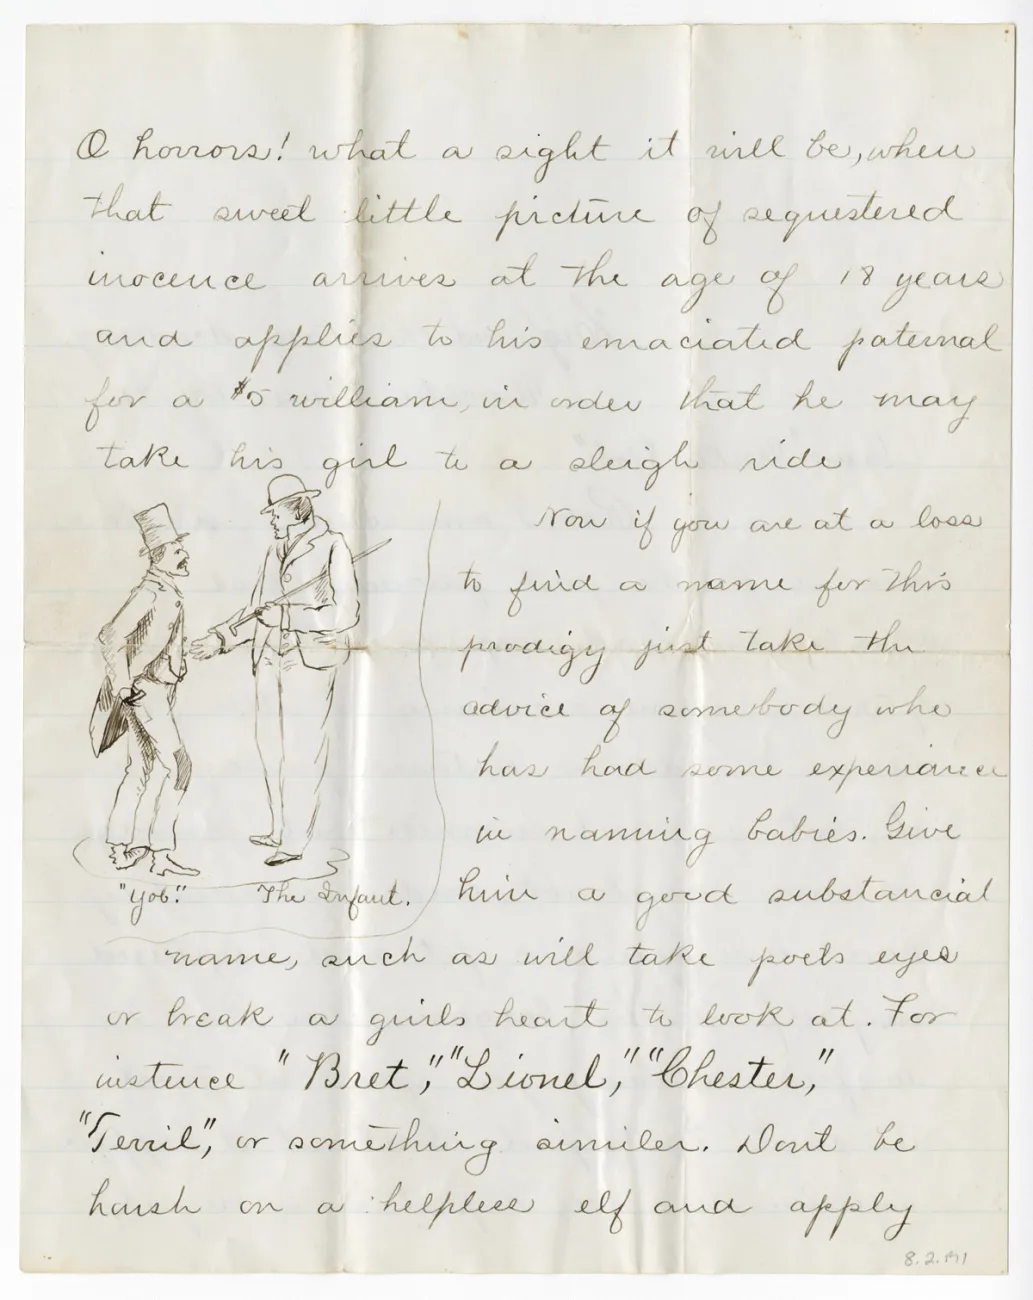 O horrors! what a sight it will be, when
that sweet little picture of sequestered
inocence arrives at the age of 18 years
and applies to his emaciated paternal
for a $5 william, in order that he may
take his girl to a sleigh ride
Now if you are at a loss
to find a name for this
prodigy just take the
advice of somebody who
has had some experiance
in naming babies. Give
him a good substancial
"Yob". The Infant.
name, such as will take poets eyes
or break a girls heart to look at. For
instence "Bret," "Lionel," "Chester,"
"Terril", or something similer. Dont be
harsh on a helpless elf and apply
8.2.191